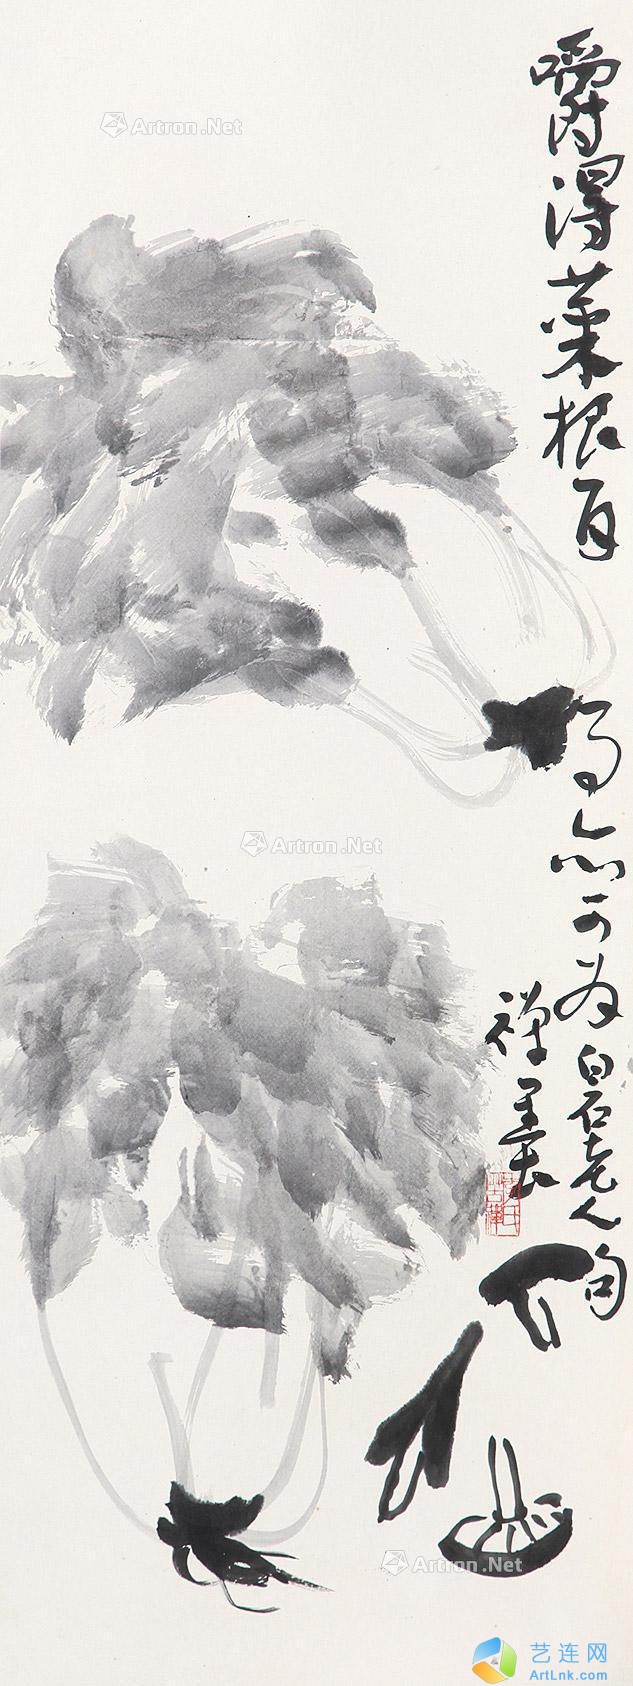 嚼得菜根百
事亦可为白石老人句
禅墨
Artron.Net
Artron.Net
Artron.Net
艺连网
ArtLnk.com